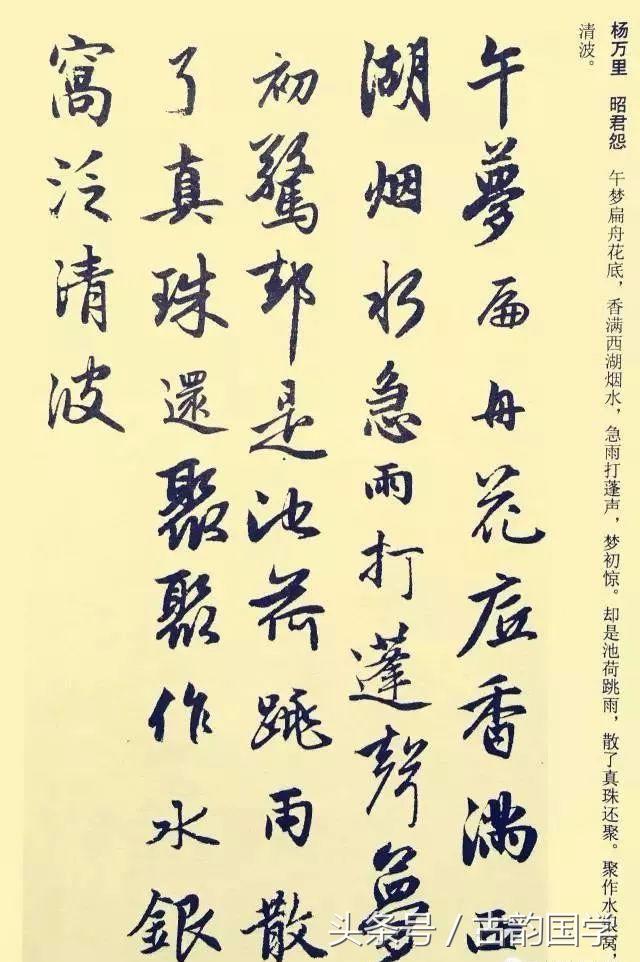 杨万里 昭君怨 午梦扁舟花底，香满西湖烟水，急雨打蓬声，梦初惊。却是池荷跳雨，散了真珠还聚。聚作水银窝，
清波。
午夢扁舟花底香滿西
湖烟水急雨打蓬聲夢
初驚却是池荷跳雨散
了真珠還聚聚作水銀
窩泛清波
头条号 / 古韵国学